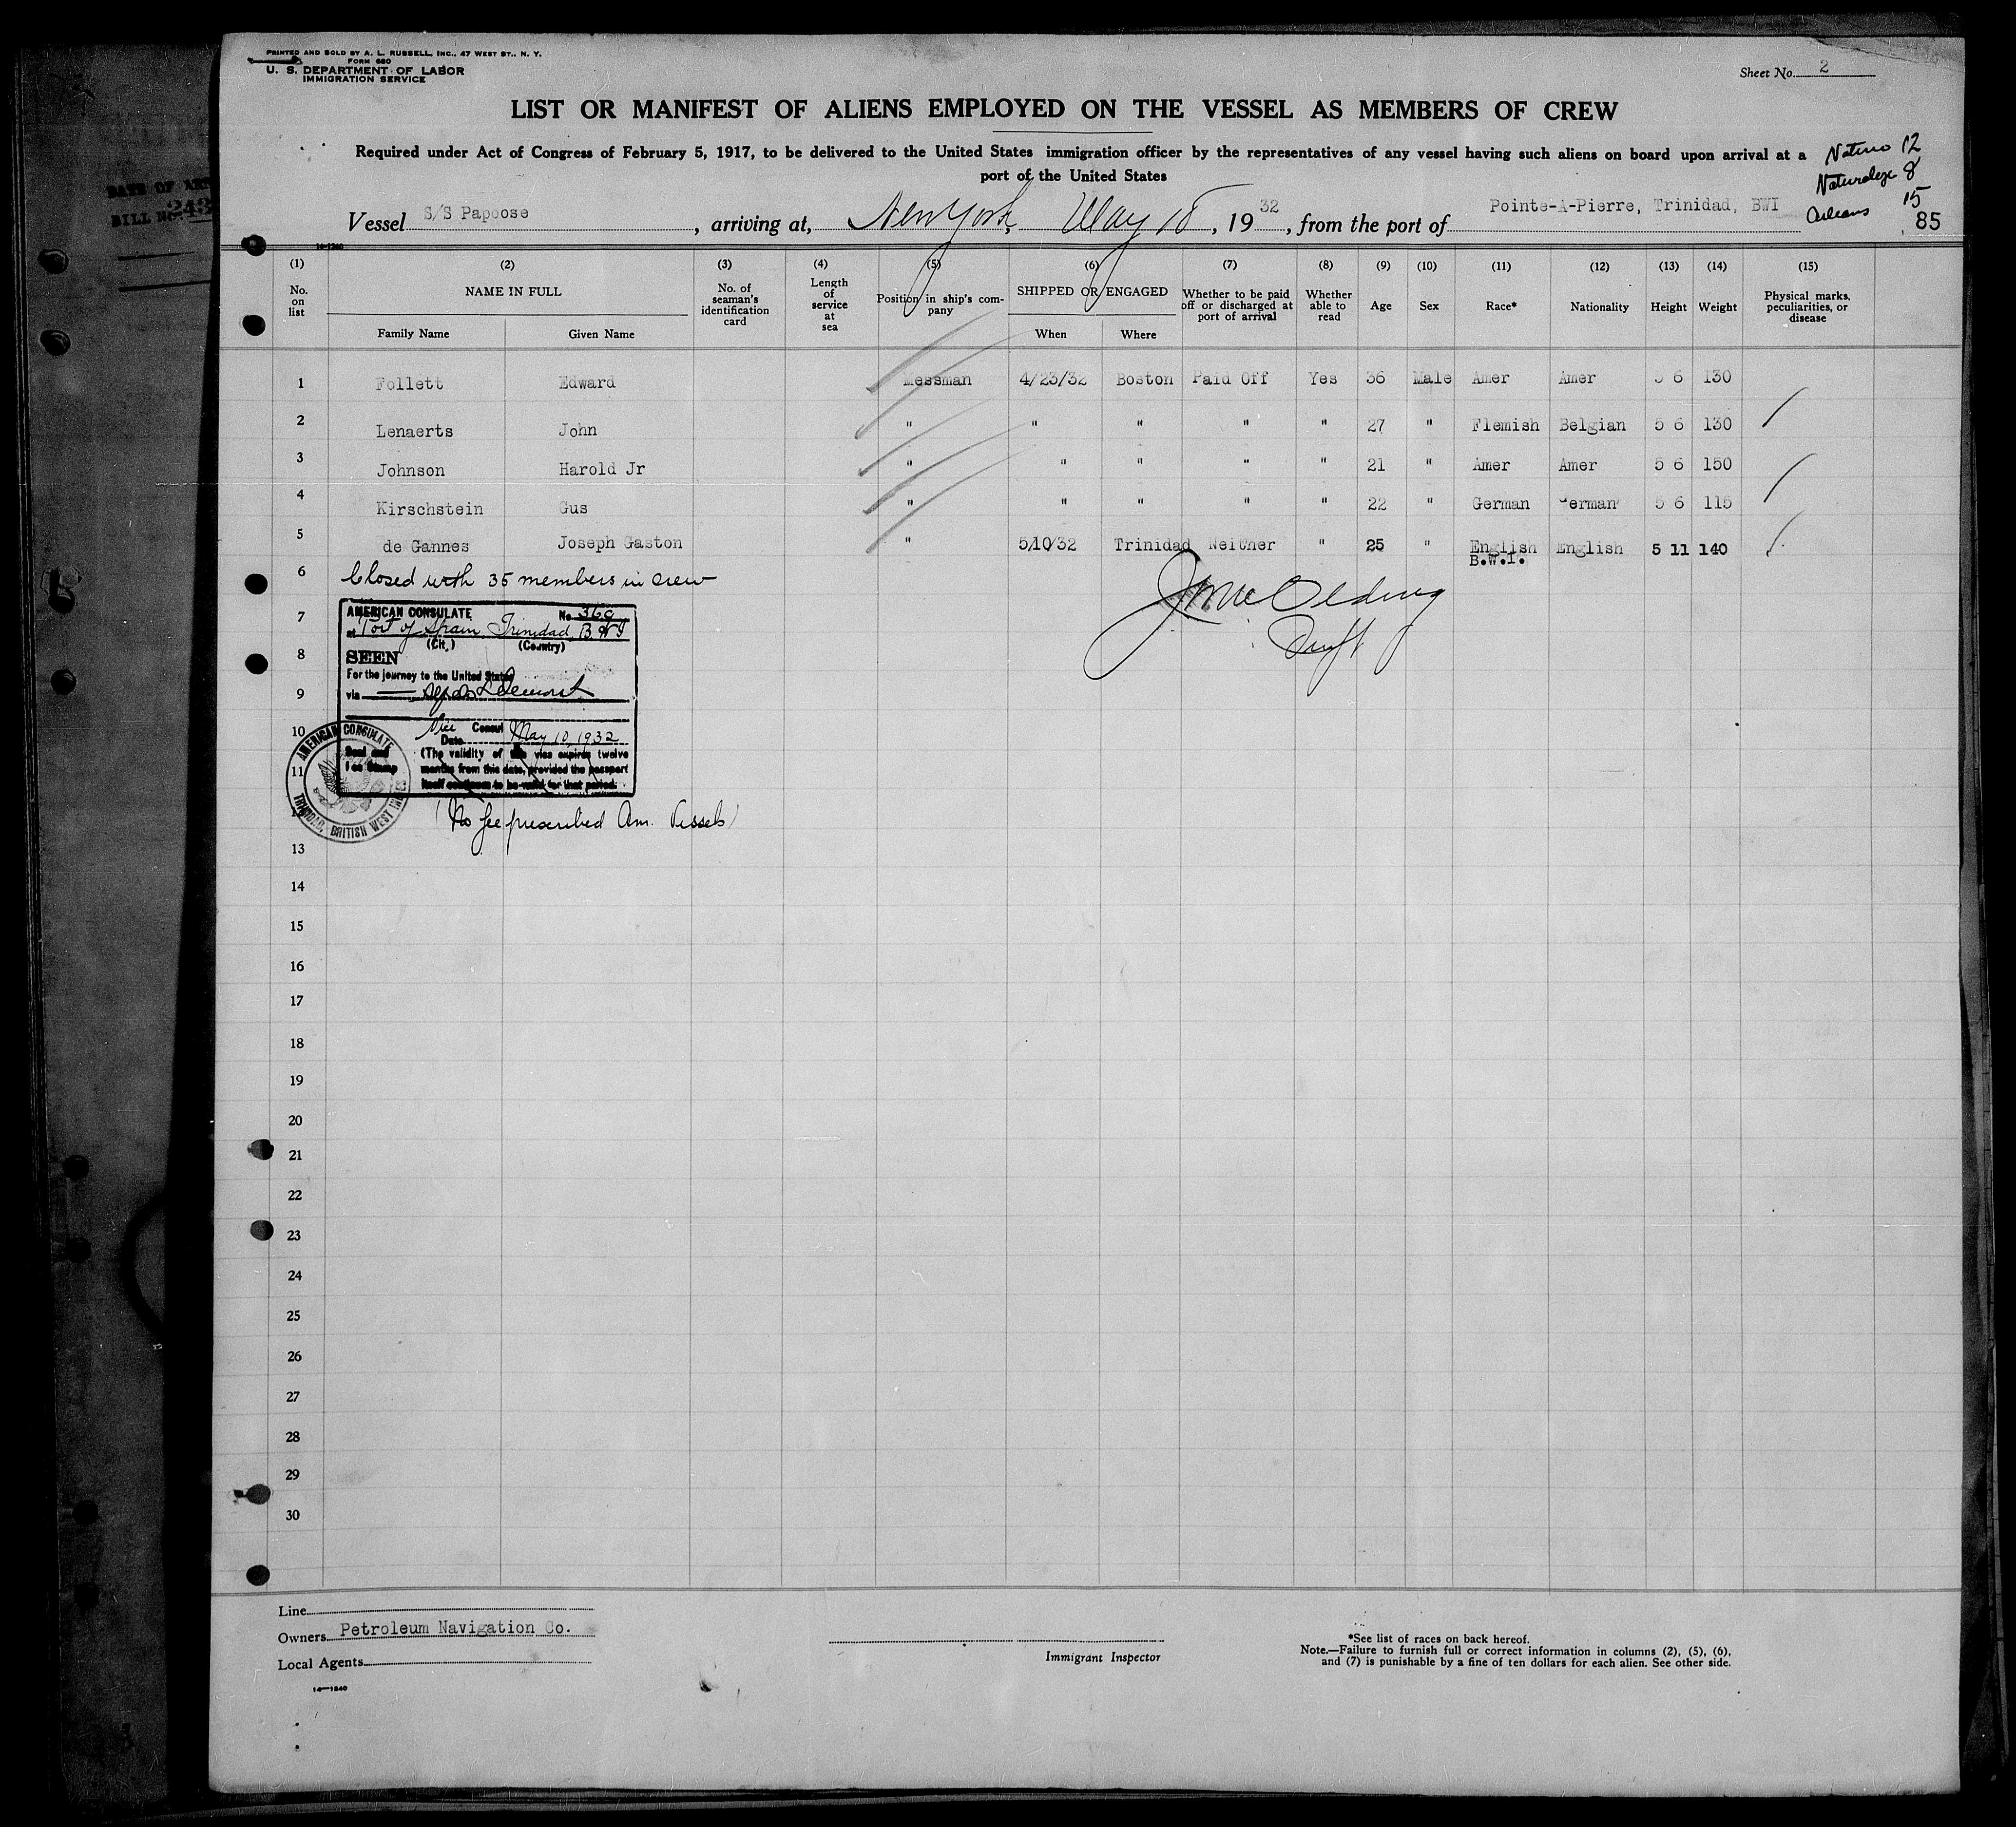 PRINTED AND SOLD BY A. L. RUSSELL, INC., 47 WEST ST., N. Y.
FORM 680
U. S. DEPARTMENT OF LABOR
IMMIGRATION SERVICE
Sheet No. 2
LIST OR MANIFEST OF ALIENS EMPLOYED ON THE VESSEL AS MEMBERS OF CREW
Required under Act of Congress of February 5, 1917, to be delivered to the United States immigration officer by the representatives of any vessel having such aliens on board upon arrival at a
port of the United States
12
8
15
85
BILL No. 243
Vessel S/S Papoose, arriving at, New York, May 18, 1932, from the port of Pointe-A-Pierre, Trinidad, BWI
14-1240
(1) (2) (3) (4) (5) (6) (7) (8) (9) (10) (11) (12) (13) (14) (15)
No. on list NAME IN FULL No. of seaman's identification card Length of service at sea Position in ship's company SHIPPED OR ENGAGED Whether to be paid off or discharged at port of arrival Whether able to read Age Sex Race* Nationality Height Weight Physical marks, peculiarities, or disease
Family Name Given Name When Where
1 Follett Edward Messman 4/23/32 Boston Paid Off Yes 36 Male Amer Amer 5 6 130
2 Lenaerts John " " " " " 27 " Flemish Belgian 5 6 130
3 Johnson Harold Jr " " " " " 21 " Amer Amer 5 6 150
4 Kirschstein Gus " " " " " 22 " German German 5 6 115
5 de Gannes Joseph Gaston " 5/10/32 Trinidad Neither " 25 " English English 5 11 140
B.W.I.
6 Closed with 35 members in crew
7
AMERICAN CONSULATE No 368
at Port of Spain Trinidad, B.W.I
(City) (Country)
8
SEEN
For the journey to the United States
9
via
10
Vice Consul
Date May 10, 1932
(The validity of this visa expires twelve
months from this date, provided the passport
itself continues to be valid for that period.
Seal and
Fee Stamp
AMERICAN CONSULATE
TRINIDAD, BRITISH WEST INDIES
11
12
(No fee prescribed Am. Vessels)
13
14
15
16
17
18
19
20
21
22
23
24
25
26
27
28
29
30
Line
Owners Petroleum Navigation Co.
Local Agents
14-1240
Immigrant Inspector
*See list of races on back hereof.
Note.—Failure to furnish full or correct information in columns (2), (5), (6),
and (7) is punishable by a fine of ten dollars for each alien. See other side.